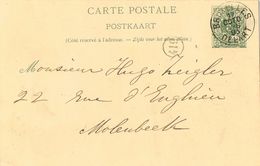 CARTE POSTALE
POSTKAART
(Côté réservé à l'adresse. — Zijde voor het adres.)
BRUXELLES
DEPART
Monsieur Hugo Zeigler
22 rue d'Enghien
Molenbeek